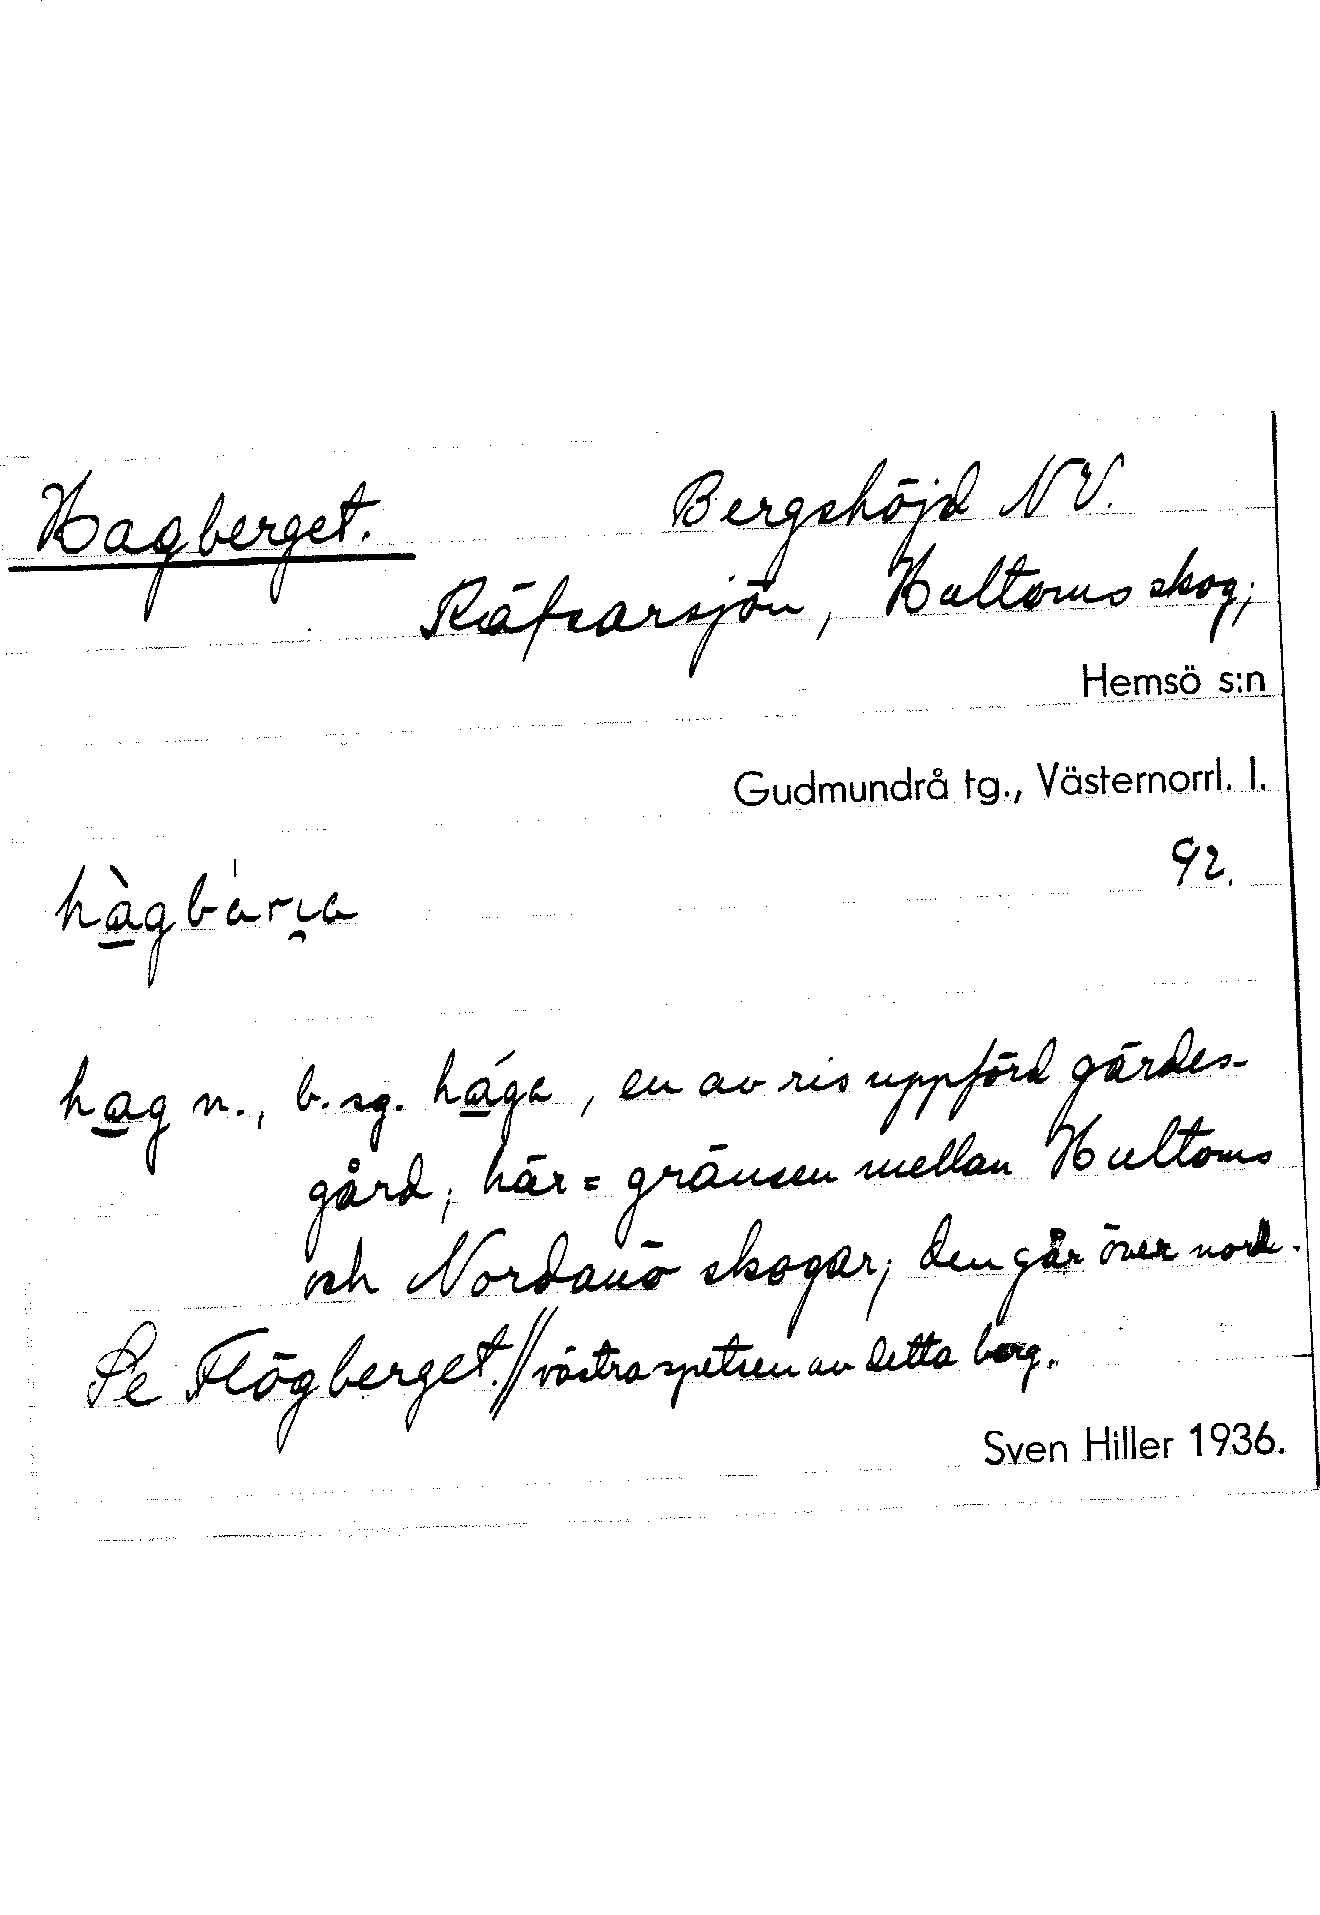 Hagberget. Bergshöjd NV.
Räfsarsjön, Hultoms skog;
Hemsö s:n
Gudmundrå tg., Västernorrl. l.
92.
hag n., b. sg. hága, en av ris uppförd gärdes-
gård; här = gränsen mellan Hultoms
och Nordanö skogar; den går över nord-
Se Flögberget. // västra spetsen av detta berg.
Sven Hiller 1936.